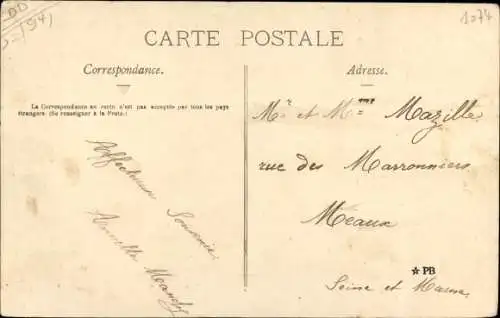 1074
CARTE POSTALE
Correspondance.
Adresse.
La Correspondance au recto n'est pas acceptée par tous les pays
étrangers. (Se renseigner à la Poste.)
Mr et Mme Mazille
rue des Marronniers
Meaux
Seine et Marne
Affectueux Souvenir
PB